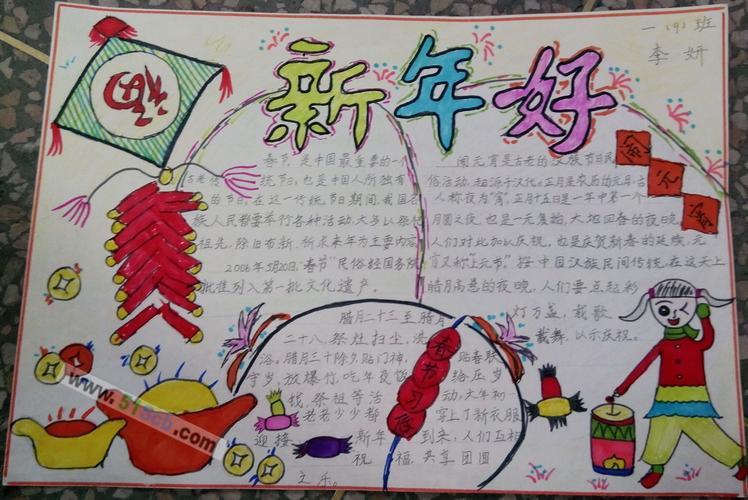 一(9)班
李妍
新年好
春节,是中国最重要的一个
古老传统节日,也是中国人所独有
的节日,在这一传统节日期间,我国各
族人民都要举行各种活动,大多以祭祀
祖先,除旧布新,祈求来年为主要内容
2006年5月20日,"春节"民俗经国务院
批准列入第一批文化遗产。
闹元宵
闹元宵是古老的汉族节日民
俗活动,起源于汉代。正月是农历的元月,古
人称夜为"宵",正月十五日是一年中第一个
月圆之夜,也是一元复始,大地回春的夜晚,
人们对此加以庆祝,也是庆贺新春的延续,元
宵又称"上元节"。按中国汉族民间传统,在这天上
皓月高悬的夜晚,人们要点起彩
灯万盏,载歌
载舞,以示庆祝。
春节习俗
腊月二十三至腊月
二十八,祭灶扫尘,洗
浴,腊月三十除夕,贴门神,贴春联
守岁,放爆竹,吃年夜饭,给压岁
钱,祭祖等活动,大年初一
老老少少都穿上了新衣服
迎接新年到来,人们互相
祝福,共享团圆
之乐。
www.51scb.com